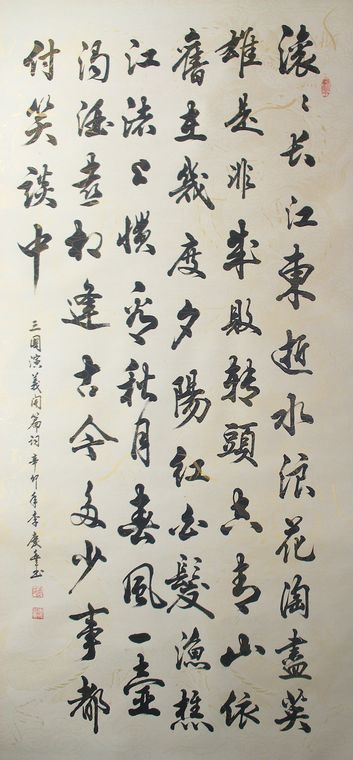 滾〻長江東逝水浪花淘盡英
雄是非成敗轉頭空青山依
舊在幾度夕陽紅白髮漁樵
江渚上慣看秋月春風一壺
濁酒喜相逢古今多少事都
付笑談中
三國演義開篇詞辛卯年李